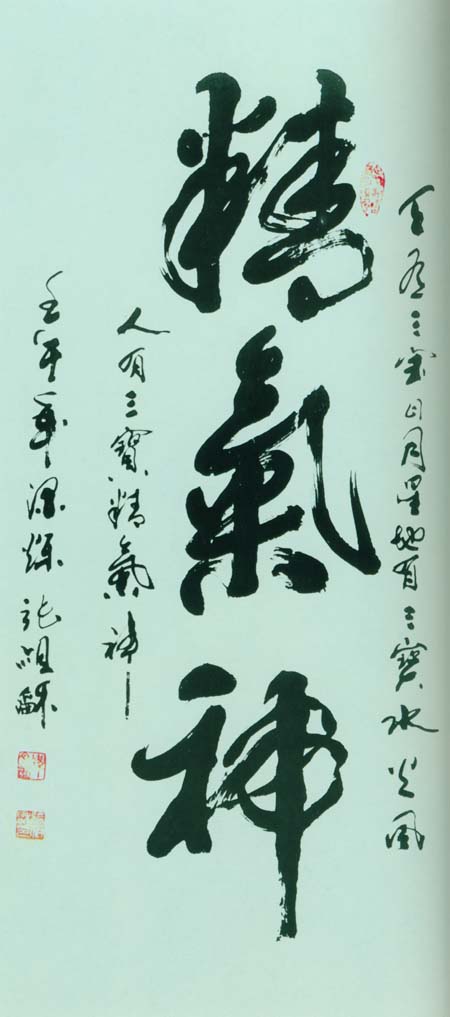 天有三宝日月星地有三寶水火风
精氣神
人有三寶精氣神
壬午年深秋